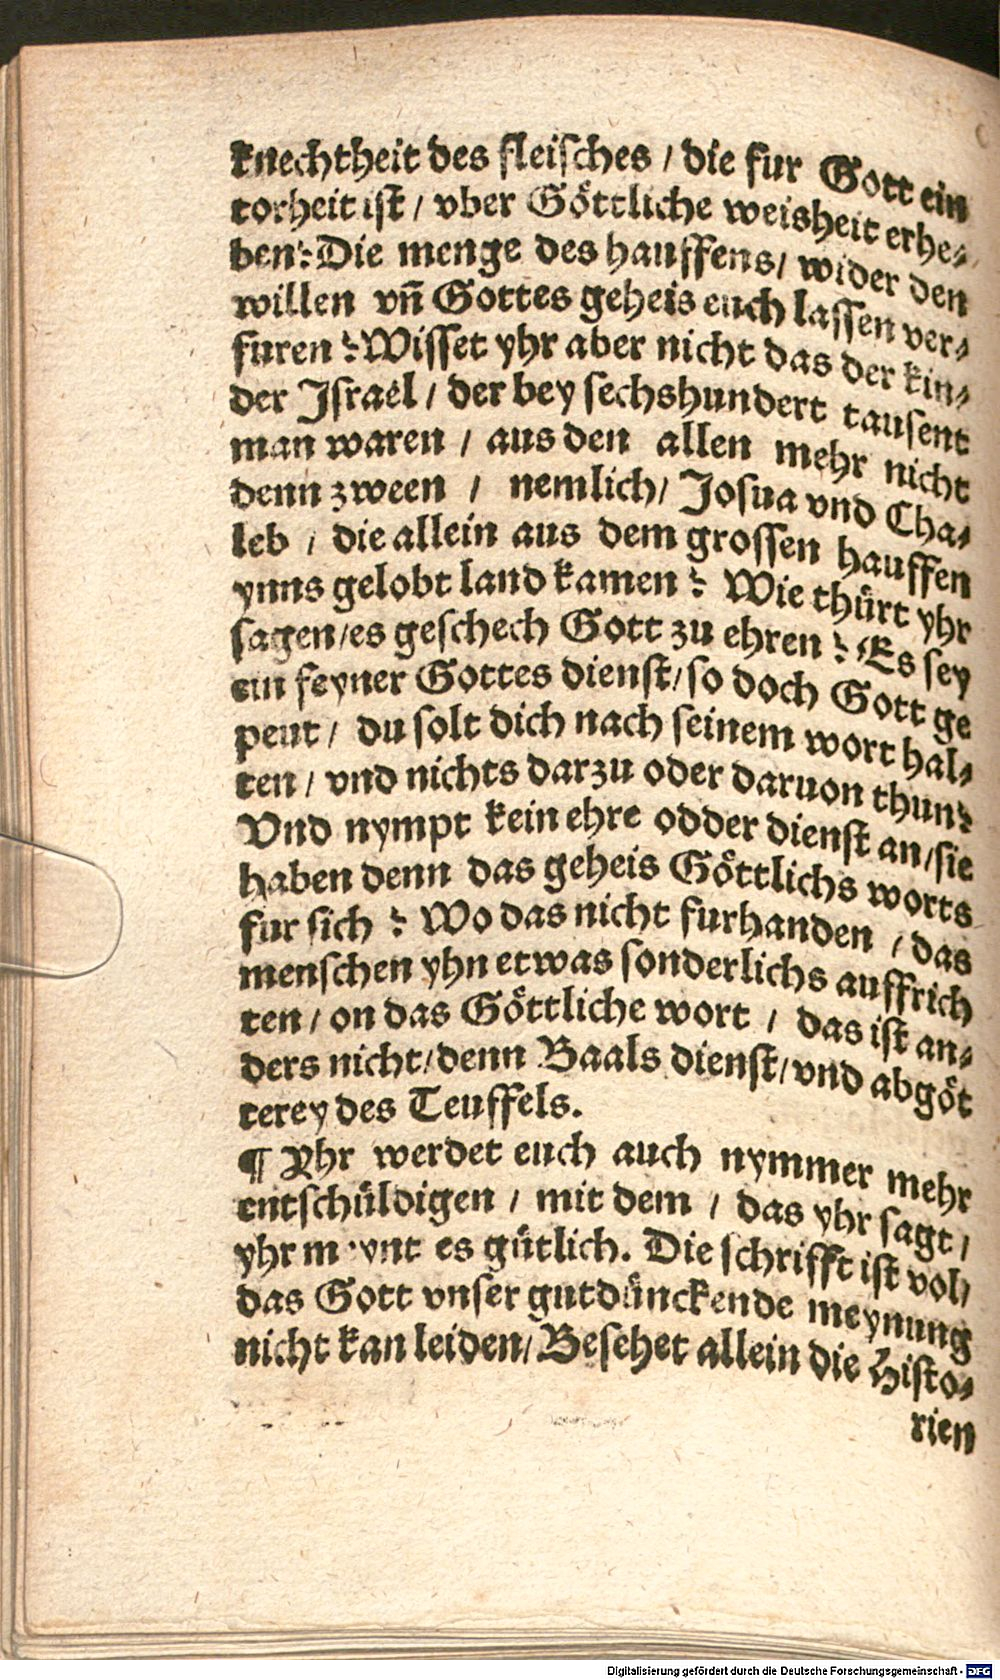 knechtheit des fleisches / die fur Gott ein
torheit ist / vber Göttliche weisheit erhe⸗
ben? Die menge des hauffens / wider den
willen vñ Gottes geheis euch lassen ver⸗
furen? Wisset yhr aber nicht das der kin⸗
der Jsrael / der bey sechshundert tausent
man waren / aus den allen mehr nicht
denn zween / nemlich / Josua vnd Cha⸗
leb / die allein aus dem grossen hauffen
ynns gelobt land kamen? Wie thürt yhr
sagen / es geschech Gott zu ehren? Es sey
ein feyner Gottes dienst / so doch Gott ge
peut / du solt dich nach seinem wort hal⸗
ten / vnd nichts darzu oder daruon thun?
Vnd nympt kein ehre odder dienst an / sie
haben denn das geheis Göttlichs worts
fur sich? Wo das nicht furhanden / das
menschen yhn etwas sonderlichs auffrich
ten / on das Göttliche wort / das ist an⸗
ders nicht / denn Baals dienst / vnd abgöt
terey des Teuffels.
¶ Yhr werdet euch auch nymmer mehr
entschüldigen / mit dem / das yhr sagt /
yhr meynt es gütlich. Die schrifft ist vol /
das Gott vnser gutdünckende meynung
nicht kan leiden / Besehet allein die Histo⸗
rien
Digitalisierung gefördert durch die Deutsche Forschungsgemeinschaft - DFG